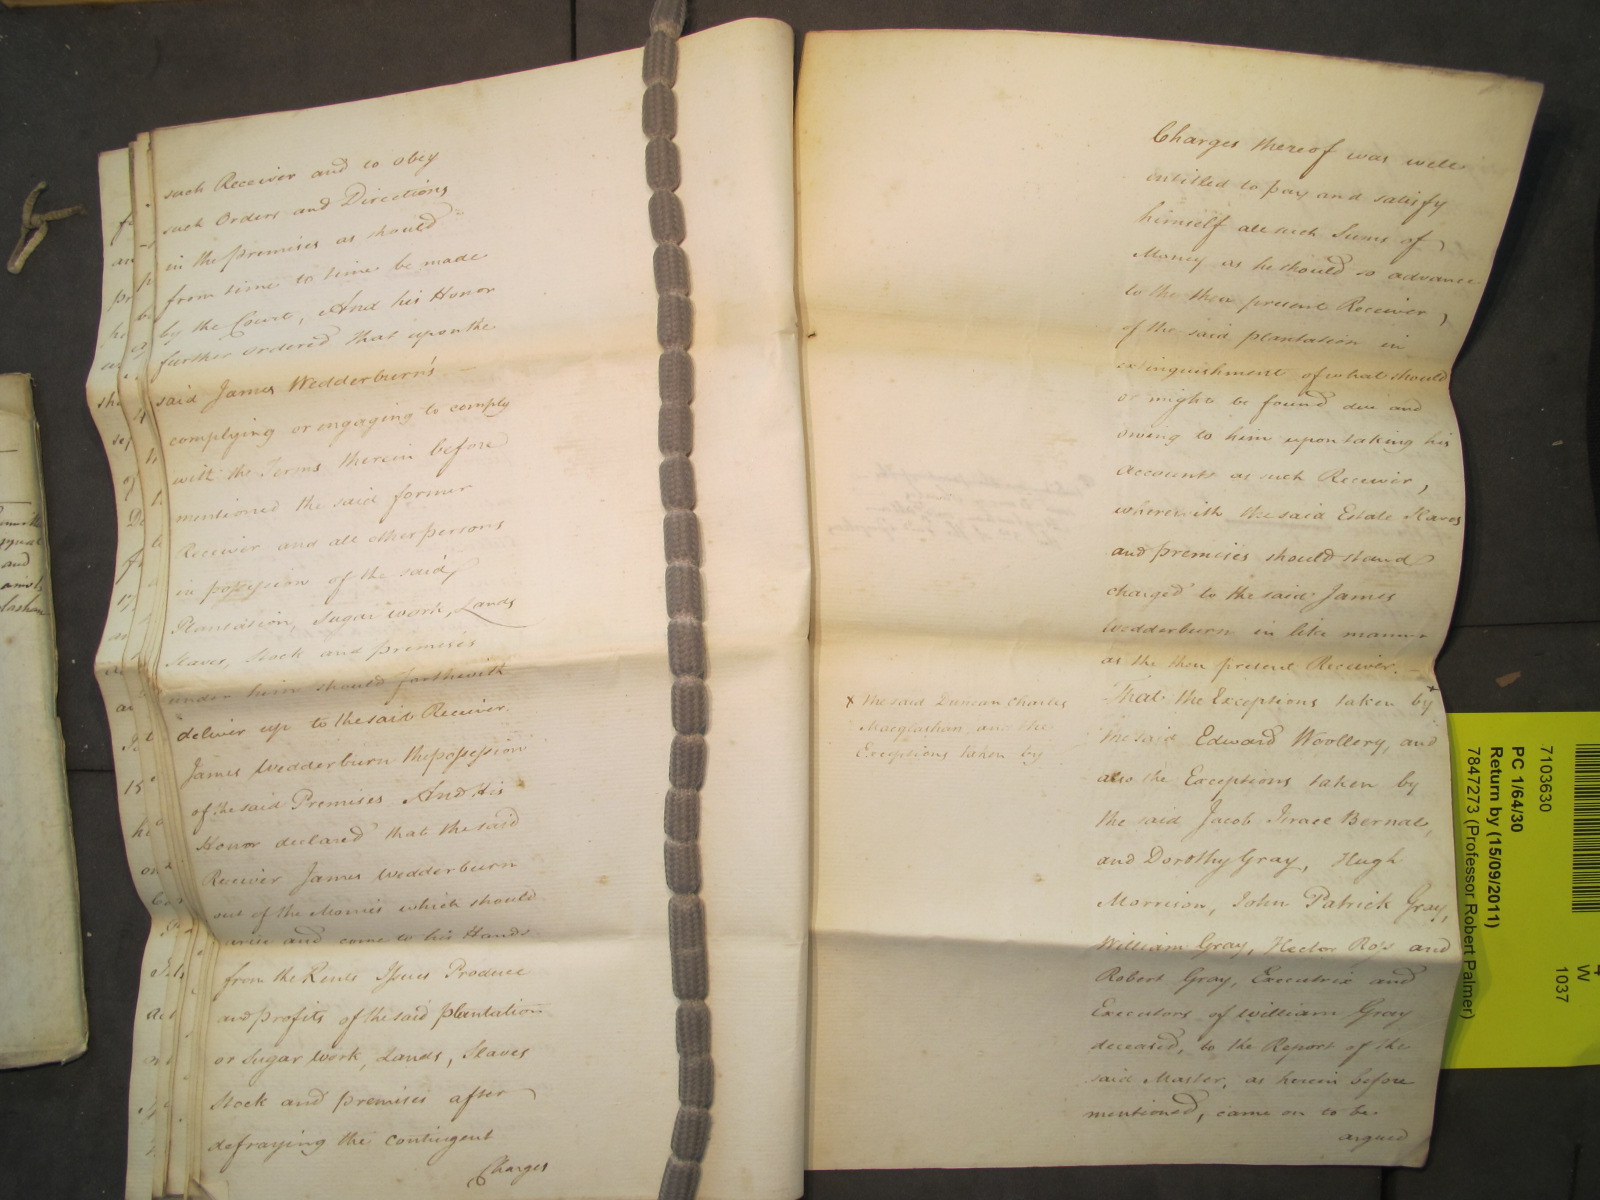 such Receiver and to obey
such Orders and Directions
in the premises as should
from time to time be made
by the Court, And his Honor
further ordered that upon the
said James Wedderburn's
complying or engaging to comply
with the Terms therein before
mentioned the said former
Receiver and all other persons
in possession of the said
Plantation, Sugar work, Lands
Slaves, Stock and premises
under him should forthwith
deliver up to the said Receiver
James Wedderburn the possession
of the said Premises And His
Honor declared that the said
Receiver James Wedderburn
out of the Monies which should
arise and come to his Hands
from the Rents Issues Produce
and profits of the said plantation
or Sugar work, Lands, Slaves
Stock and premises after
defraying the contingent
Charges
Charges thereof was well
entitled to pay and satisfy
himself all such Sums of
Money as he should so advance
to the then present Receiver
of the said plantation in
extinguishment of what should
or might be found due and
owing to him upon taking his
Accounts as such Receiver,
wherewith the said Estate Slaves
and premises should stand
charged to the said James
Wedderburn in like manner
as the then present Receiver. —
That the Exceptions taken by x
x the said Duncan Charles
Macglashan and the
Exceptions taken by
the said Edward Woollery, and
also the Exceptions taken by
the said Jacob Israel Bernal,
and Dorothy Gray, Hugh
Morrison, John Patrick Gray,
William Gray, Hector Ross and
Robert Gray, Executrix and
Executors of William Gray
deceased, to the Report of the
said Master, as herein before
mentioned, came on to be
argued
7103630
PC 1/64/30
Return by (15/09/2011)
7847273 (Professor Robert Palmer)
W
1037